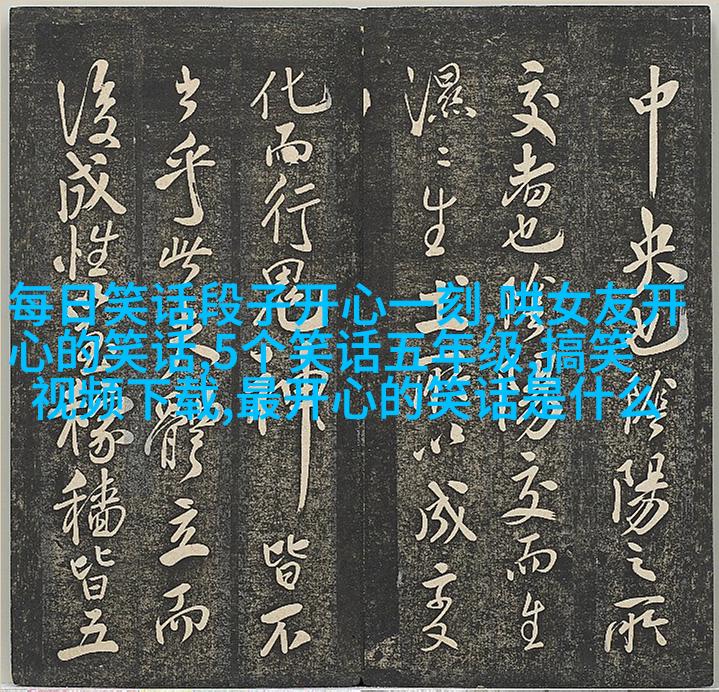 中央也陰陽之所
交者也陰陽交而生
濕〻生土以成變
化而行鬼神皆不
出乎此矣體立而
後成性稼穡皆五
每日笑话段子开心一刻,哄女友开
心的笑话,5个笑话五年级,搞笑
视频下载,最开心的笑话是什么